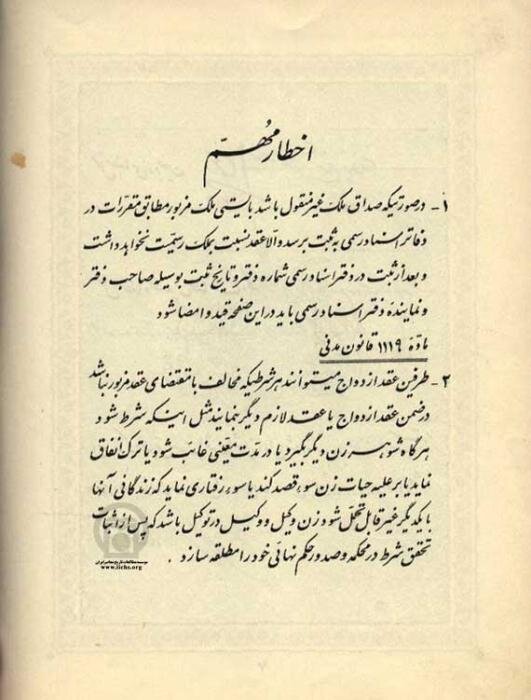 اخطار مهم
۱- درصورتیکه صداق ملک غیرمنقول باشد بایستی ملک مزبور مطابق مقررات در
دفاتر اسناد رسمی به ثبت برسد والا عقد نسبت بملک رسمیت نخواهد داشت
و بعد از ثبت در دفتر اسناد رسمی شماره دفتر و تاریخ ثبت بوسیله صاحب دفتر
و نماینده دفتر اسناد رسمی باید در این صفحه قید و امضا شود
مادهٔ ۱۱۱۹ قانون مدنی
۲- طرفین عقد ازدواج میتوانند هر شرطیکه مخالف با مقتضای عقد مزبور نباشد
در ضمن عقد ازدواج یا عقد لازم دیگر نمایند مثل اینکه شرط شود
هرگاه شوهر زن دیگر بگیرد یا در مدت معینی غائب شود یا ترک انفاق
نماید یا بر علیه حیات زن سوء قصد کند یا سوء رفتاری نماید که زندگانی آنها
با یکدیگر غیر قابل تحمل شود زن وکیل و وکیل در توکیل باشد که پس از اثبات
تحقق شرط در محکمه و صدور حکم نهائی خود را مطلقه سازد.
موسسه مطالعات تاریخ معاصر ایران
www.iichs.org